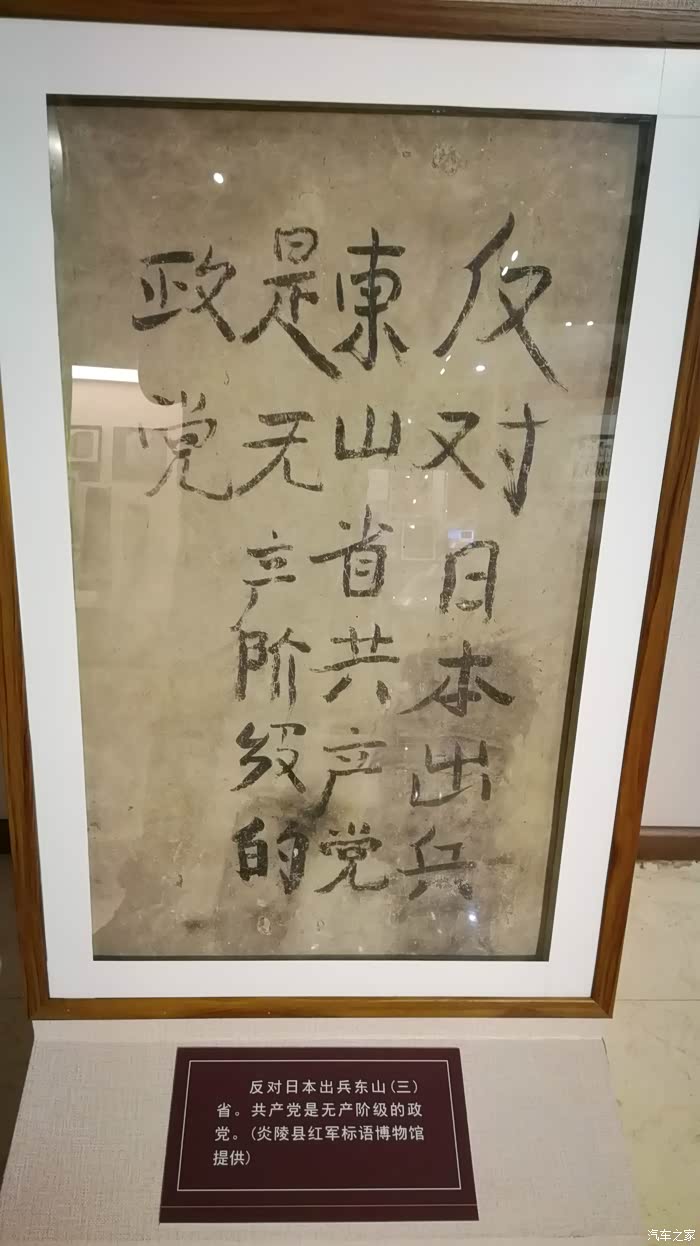 反对日本出兵
東山省共产党
是无产阶级的
政党
反对日本出兵东山(三)
省。共产党是无产阶级的政
党。(炎陵县红军标语博物馆
提供)
汽车之家